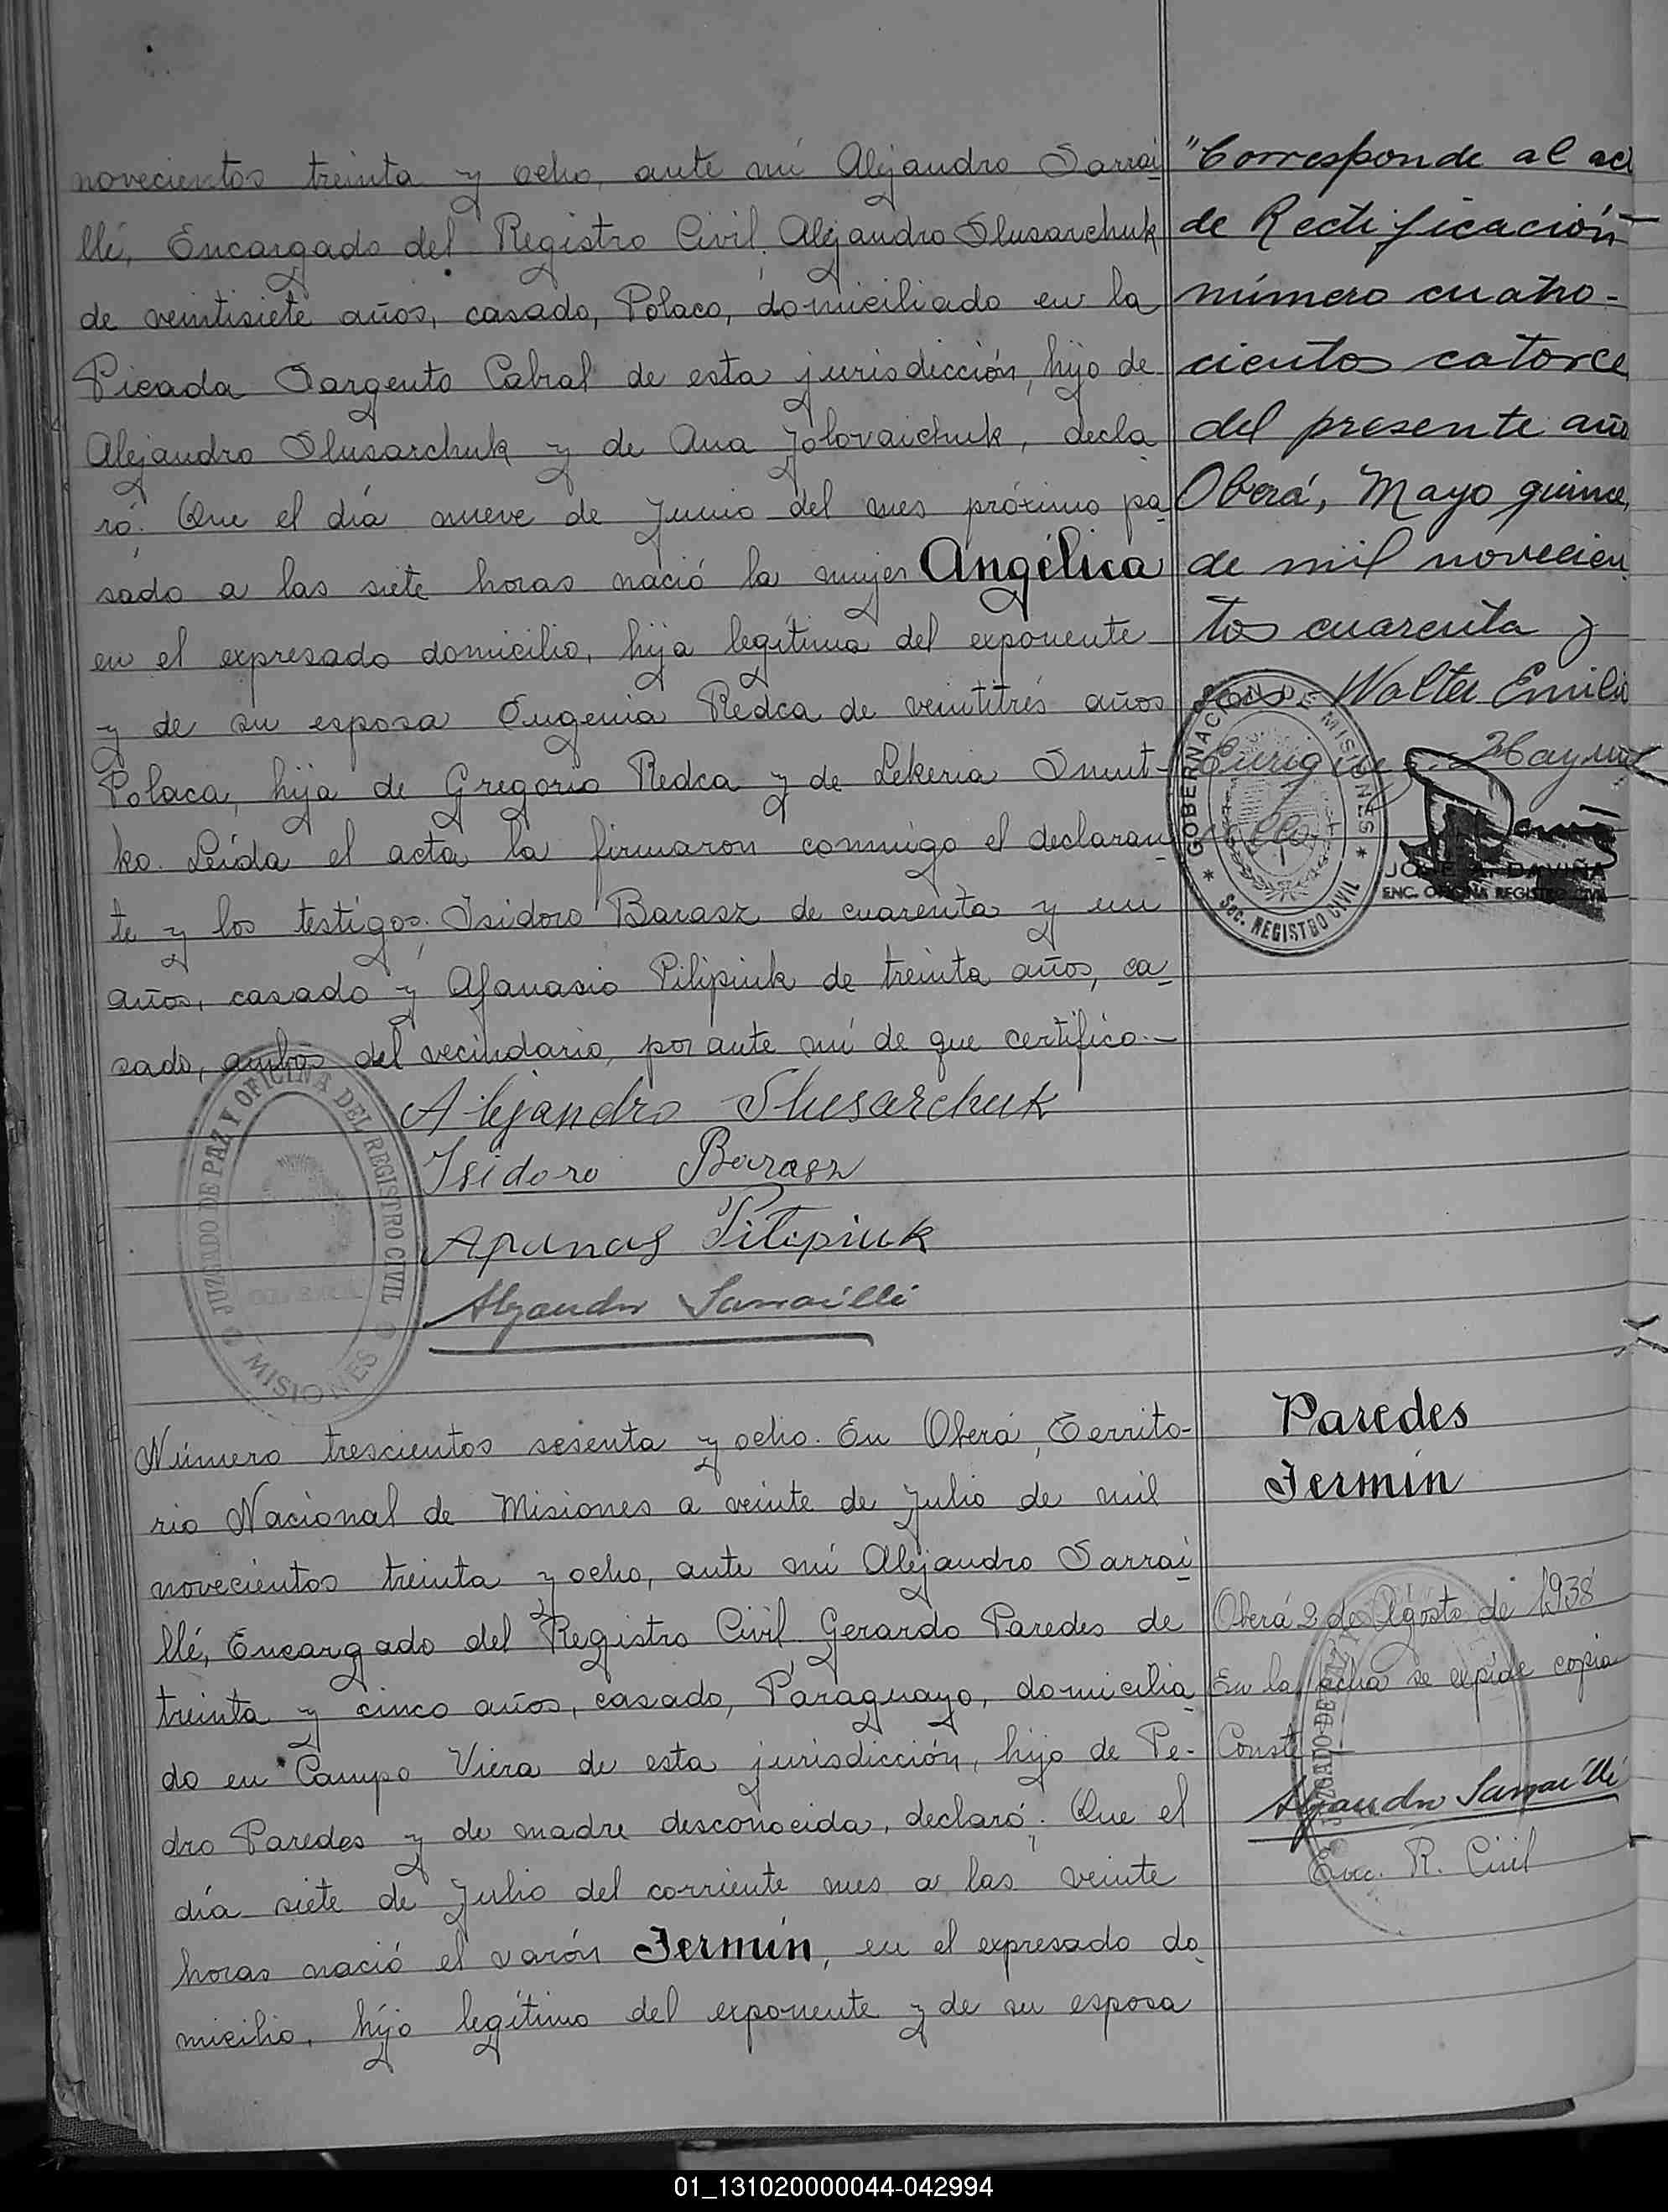 novecientos treinta y ocho, ante mí Alejandro Sarrai
llé, Encargado del Registro Civil. Alejandro Slusarchuk
de veintisiete años, casado, Polaco, domiciliado en la
Picada Sargento Cabral de esta jurisdicción, hijo de
Alejandro Slusarchuk y de Ana Jolovaichuk, decla
ró: Que el día nueve de Junio del mes próximo pa
sado a las siete horas nació la mujer Angélica
en el expresado domicilio, hija legítima del exponente
y de su esposa Eugenia Redca de veintitrés años
Polaca, hija de Gregorio Redca y de Lekeria Smut-
ko. Leída el acta la firmaron conmigo el declaran
te y los testigos: Isidoro Barasz de cuarenta y un
años, casado y Afanasio Pilipiuk de treinta años, ca
sado, ambos del vecindario, por ante mí de que certifico.—
Alejandro Slusarchuk
Isidoro Barasz
Apanas Pilipiuk
Alejandro Sarraillé
JUZGADO DE PAZ Y OFICINA DEL REGISTRO CIVIL
MISIONES
"Corresponde al act
de Rectificación
número cuatro-
cientos catorce
del presente año
Oberá, Mayo quince
de mil novecien
tos cuarenta y
Walter Emilio
GOBERNACION DE MISIONES
SEC. REGISTRO CIVIL
JOSE A. DAVIÑA
ENC. OFICINA REGISTRO CIVIL
Número trescientos sesenta y ocho. En Oberá, Territo-
rio Nacional de Misiones a veinte de Julio de mil
novecientos treinta y ocho, ante mí Alejandro Sarrai
llé, Encargado del Registro Civil. Gerardo Paredes de
treinta y cinco años, casado, Paraguayo, domicilia
do en Campo Viera de esta jurisdicción, hijo de Pe-
dro Paredes y de madre desconocida, declaró: Que el
día siete de Julio del corriente mes a las veinte
horas nació el varón Fermín, en el expresado do
micilio, hijo legítimo del exponente y de su esposa
Paredes
Fermín
Oberá 2 de Agosto de 1938
En la fecha se expide copia
Conste
Alejandro Sarraillé
Enc. R. Civil
JUZGADO DE PAZ
01_131020000044-042994